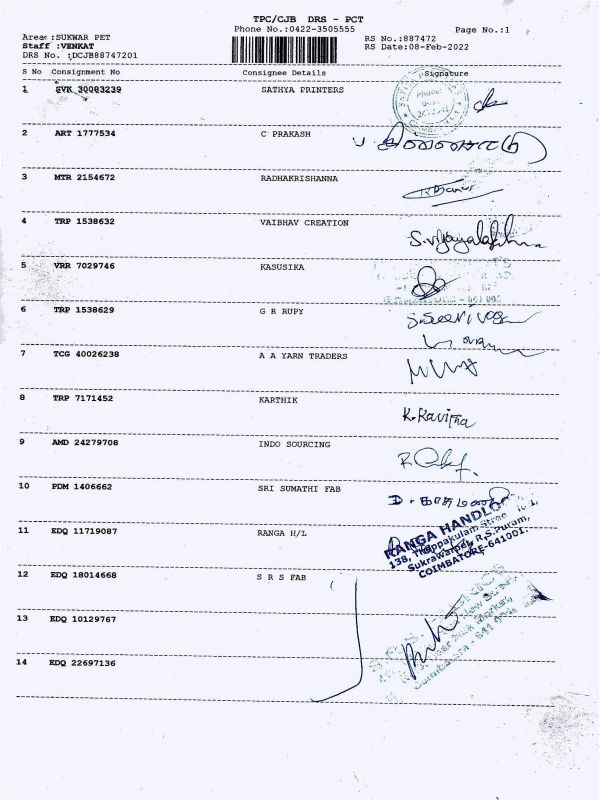 TPC/CJB DRS - PCT
Phone No.:0422-3505555
Page No.:1
Area: :SUKWAR PET
RS No.:887472
Staff :VENKAT
RS Date:08-Feb-2022
DRS No. :DCJB88747201
S No Consignment No Consignee Details Signature
1 SVK 30083239 SATHYA PRINTERS
2 ART 1777534 C PRAKASH
3 MTR 2154672 RADHAKRISHANNA
4 TRP 1538632 VAIBHAV CREATION
S.Vijayalakshmi
5 VRR 7029746 KASUSIKA
6 TRP 1538629 G R RUPY
7 TCG 40026238 A A YARN TRADERS
8 TRP 7171452 KARTHIK
K.Kavitha
9 AMD 24279708 INDO SOURCING
10 PDM 1406662 SRI SUMATHI FAB
11 EDQ 11719087 RANGA H/L
RANGA HANDLO
138, Theppakulam Street
Sukrawarpet, R.S.Puram,
COIMBATORE-641001.
12 EDQ 18014668 S R S FAB
13 EDQ 10129767
14 EDQ 22697136